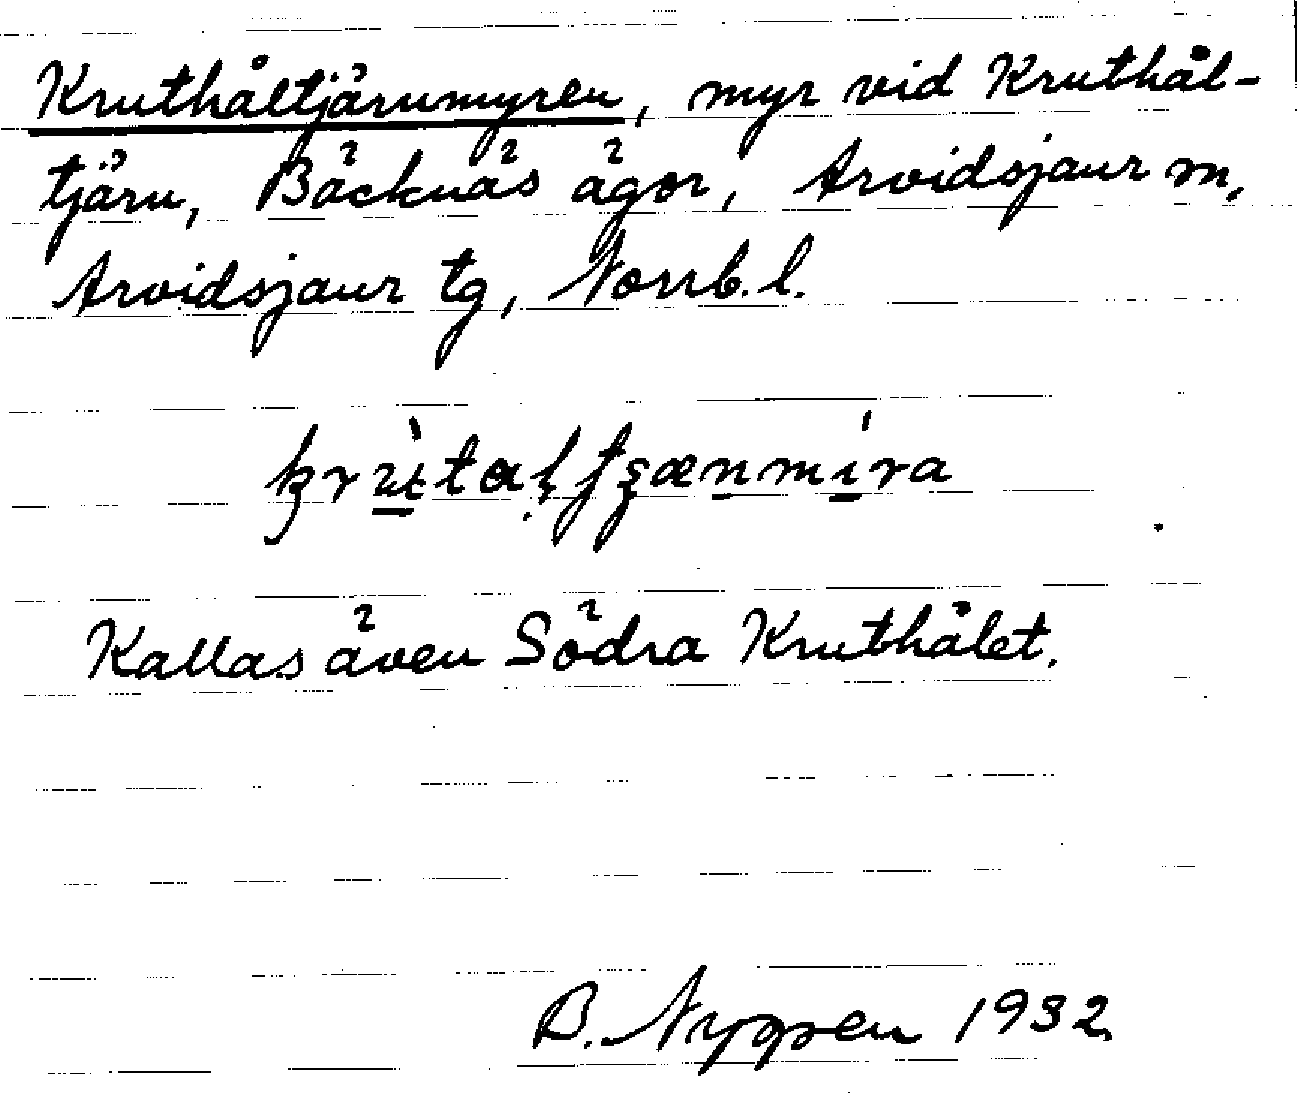 Kruthåltjärnmyren, myr vid Kruthål-
tjärn, Bäcknäs ägor, Arvidsjaur sn,
Arvidsjaur tg, Norrb. l.
Kallas även Södra Kruthålet.
B. 1932